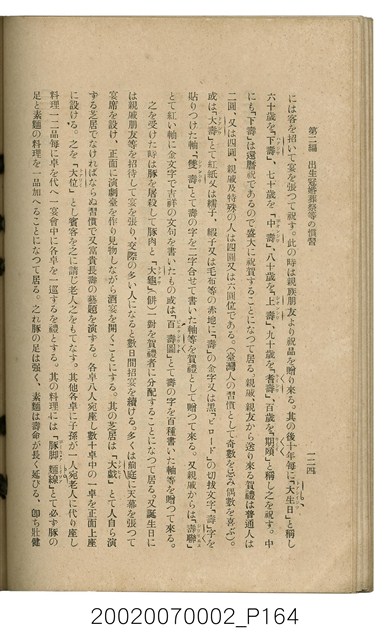 第二編 出生冠婚葬祭等の慣習
一二四
には客を招いて宴を張つて祝す。此の時は親族朋友より祝品を贈り來る。其の後十年每に「大生日」と稱し
六十歲を「下壽」、七十歲を「中壽」、八十歲を「上壽」、九十歲を「耆壽」、百歲を「期頤」と稱し之を祝す。中
にも「下壽」は還曆祝であるので盛大に祝賀することになつて居る。親戚、親友から送り來る賀禮は普通人は
二圓、又は四圓、親戚及特殊の人は四圓又は六圓位である。(臺灣人の習慣として奇數を忌み偶數を喜ぶ)。
或は「大壽」とて紅紙又は繻子、緞子又は毛布等の赤地に「壽」の金字又は黑「ビロード」の切抜文字「壽」字を
貼りつけた軸、「雙壽」とて壽の字を二字合せて書いた軸等を賀禮として贈つて來る。又親戚からは「壽聯」
とて紅い軸に金文字で吉祥の文句を書いたもの或は「百壽圖」とて壽の字を百種書いた軸等を贈つて來る。
之を受けた時は豚を屠殺して豚肉と「大龜」(餅)一對を賀禮者に分配することになつて居る。又誕生日に
は親戚朋友等を招待して宴を張り、交際の多い人になると數日間招宴を續ける。多くは前庭に天幕を張つて
宴席を設け、正面に演劇臺を作り見物しながら酒宴を開くことにする。其の芝居は「大戲」とて人自ら演
ずる芝居でなければならぬ習慣で又富貴長壽の藝題を演ずる。各卓八人宛座し數十卓中の一卓を正面上座
に設ける。之を「大位」とし賓客を之に請じ老人之をもてなす。其他各卓に子孫が一人宛老人に代り座し
料理一二品每に卓を代へ一宴會中に各卓を一巡するを禮とする。其の料理には「豚脚 麵線」とて必ず豚の
足と素麵の料理を一品加へることになつて居る。之れ豚の足は强く、素麵は壽命が長く延びる、卽ち壯健
20020070002_P164